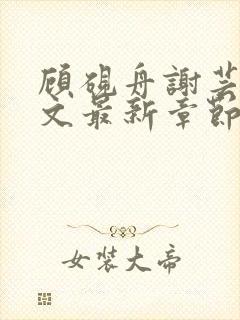 顾硯舟謝芸
文最新章節
女裝大帝